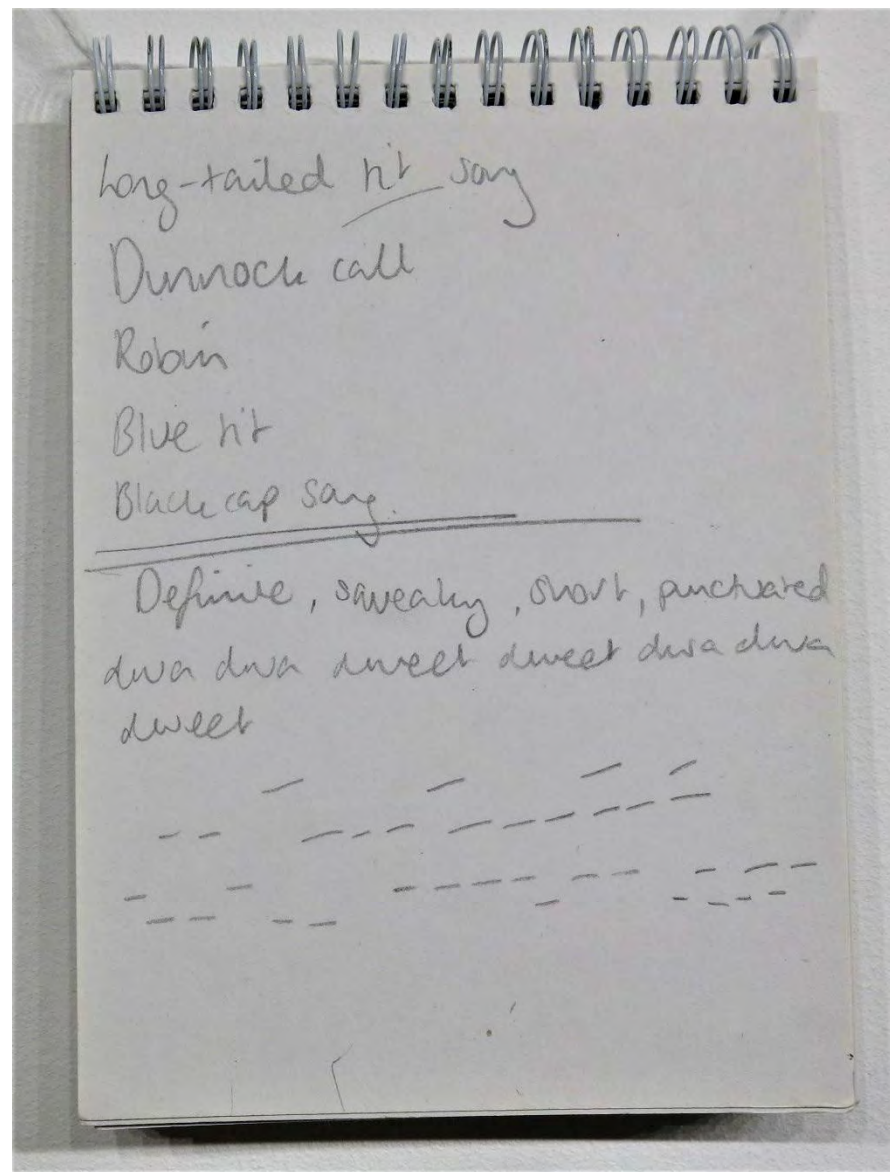 Long-tailed tit song
Dunnock call
Robin
Blue tit
Blackcap song.
Definite, squeaky, short, punctuated
dwa dwa dweet dweet dwa dwa
dweet